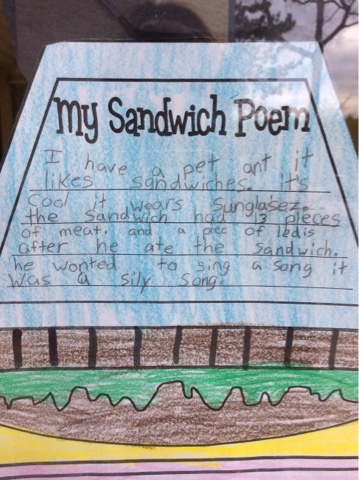 My Sandwich Poem
I have a pet ant it
likes sandwiches. it's
Cool it wears sunglasez.
the sandwich had 13 pieces
of meat. and a piec of ledis
after he ate the sandwich.
he wonted to sing a song it
was a sily song.